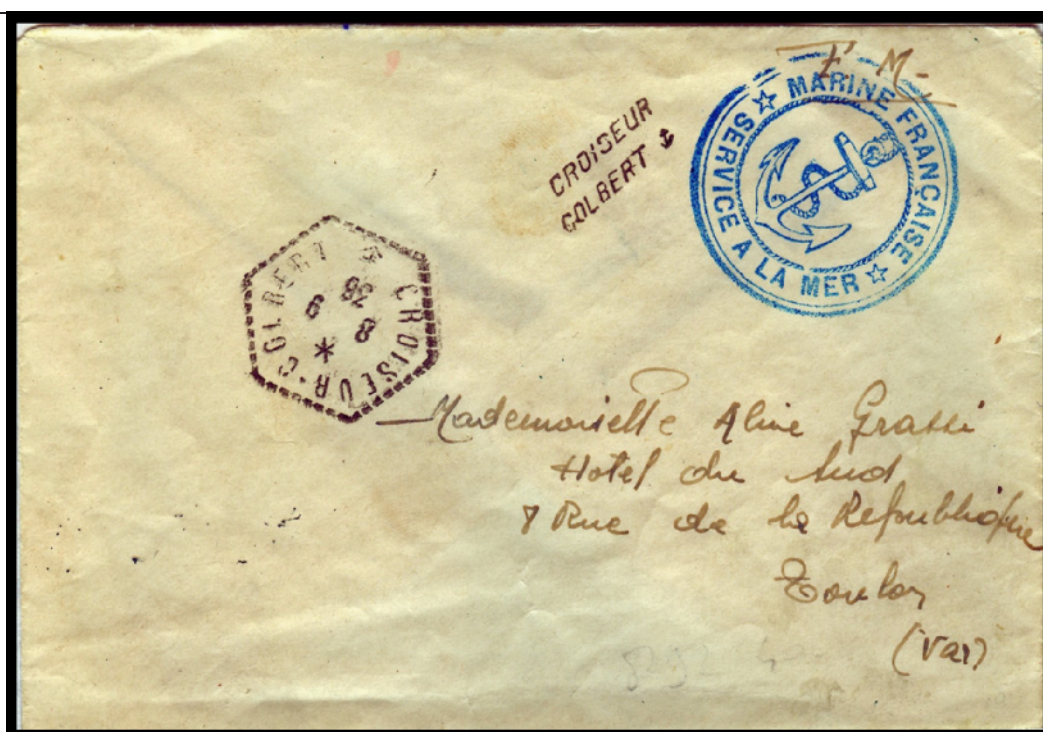 F. M.
MARINE FRANÇAISE
SERVICE A LA MER
CROISEUR
COLBERT
CROISEUR-COLBERT
Mademoiselle Aline Grassi
Hotel du Sud
7 Rue de la Republique
Toulon
(Var)